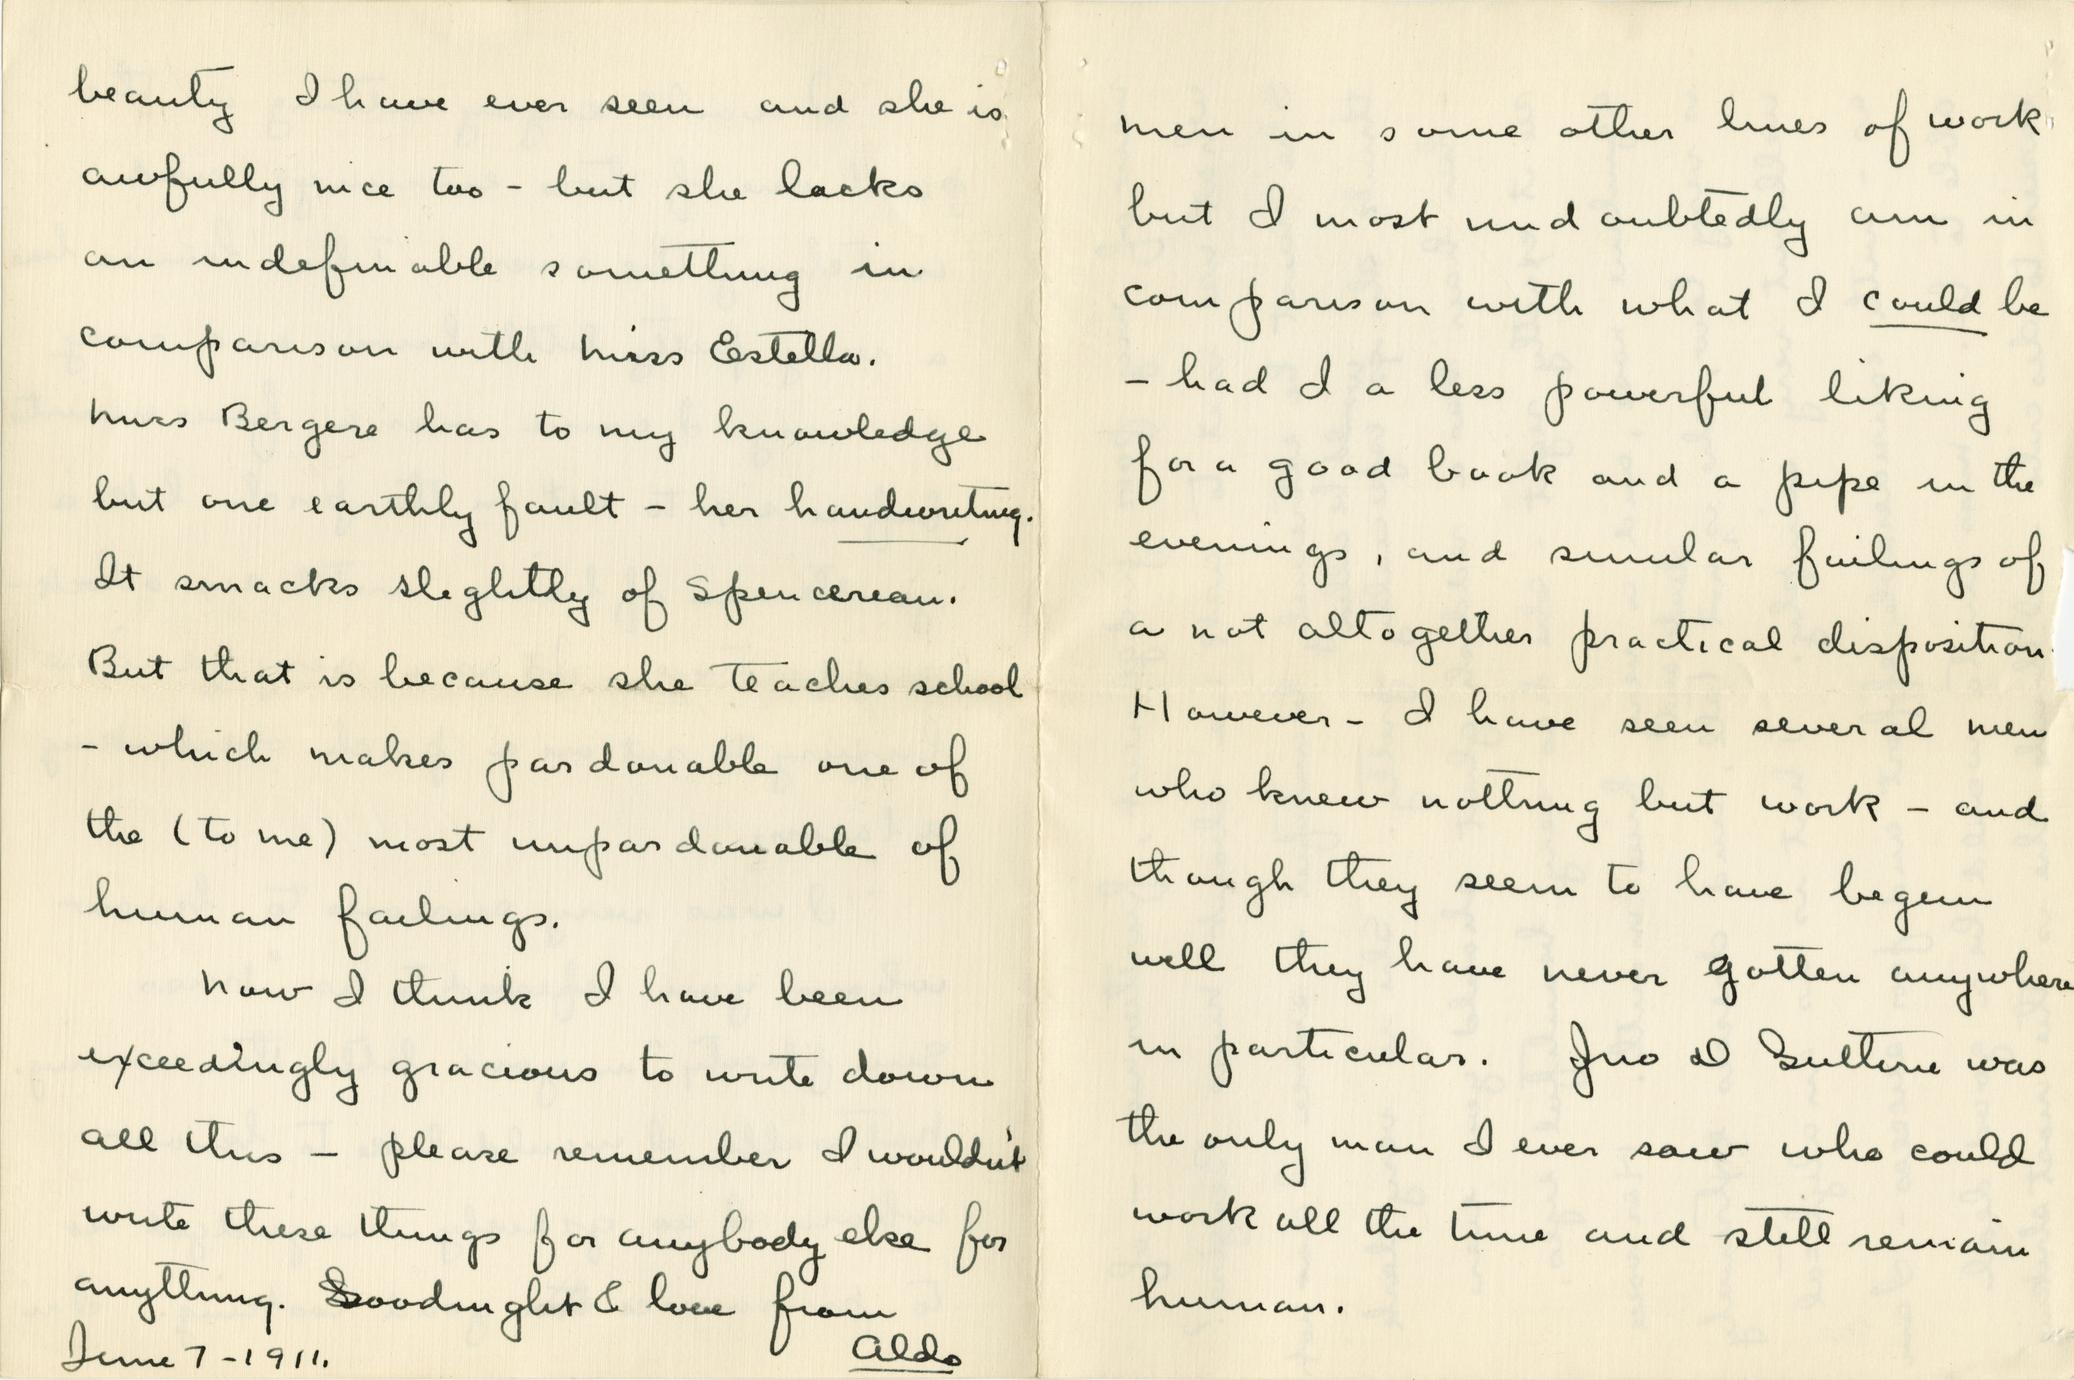 beauty I have ever seen and she is
awfully nice too - but she lacks
an indefinable something in
comparison with Miss Estella.
Miss Bergere has to my knowledge
but one earthly fault - her handwriting.
It smacks slightly of Spencerean.
But that is because she teaches school
- which makes pardonable one of
the (to me) most unpardonable of
human failings.
Now I think I have been
exceedingly gracious to write down
all this - please remember I wouldn't
write these things for anybody else for
anything. Goodnight & love from
June 7 - 1911. Aldo
men in some other lines of work
but I most undoubtedly am in
comparison with what I could be
- had I a less powerful liking
for a good book and a pipe in the
evenings, and similar failings of
a not altogether practical disposition.
However - I have seen several men
who knew nothing but work - and
though they seem to have begun
well they have never gotten anywhere
in particular. Jno D Guthrie was
the only man I ever saw who could
work all the time and still remain
human.